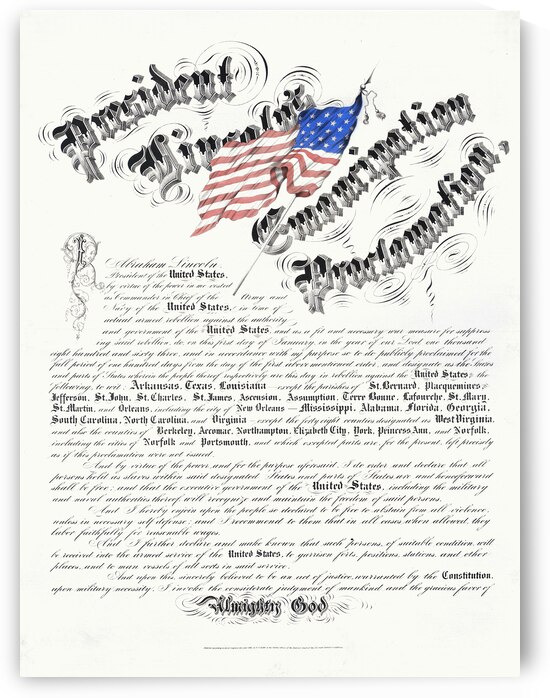 President
Lincoln's
Emancipation
Proclamation,
I, Abraham Lincoln,
President of the United States,
by virtue of the power in me vested
as Commander in Chief of the Army and
Navy of the United States, in time of
actual armed rebellion against the authority
and government of the United States, and as a fit and necessary war measure for suppress
ing said rebellion, do on this first day of January, in the year of our Lord one thousand
eight hundred and sixty three, and in accordance with my purpose so to do publicly proclaimed for the
full period of one hundred days from the day of the first above mentioned order, and designate as the States
and parts of States wherein the people thereof respectively are this day in rebellion against the United States the
following, to wit: Arkansas, Texas, Louisiana—except the parishes of St. Bernard, Placquemines
Jefferson, St. John, St. Charles, St. James, Ascension, Assumption, Terre Bonne, Lafourche, St. Mary,
St. Martin, and Orleans, including the city of New Orleans—Mississippi, Alabama, Florida, Georgia,
South Carolina, North Carolina, and Virginia—except the forty eight counties designated as West Virginia,
and also the counties of Berkeley, Accomac, Northampton, Elizabeth City, York, Princess Ann, and Norfolk,
including the cities of Norfolk and Portsmouth, and which excepted parts are, for the present, left precisely
as if this proclamation were not issued.
And by virtue of the power, and for the purpose aforesaid, I do order and declare that all
persons held as slaves within said designated States and parts of States are and henceforward
shall be free; and that the executive government of the United States, including the military
and naval authorities thereof will recognize and maintain the freedom of said persons.
And I hereby enjoin upon the people so declared to be free to abstain from all violence,
unless in necessary self defense; and I recommend to them that in all cases when allowed, they
labor faithfully for reasonable wages.
And I further declare and make known that such persons, of suitable condition, will
be received into the armed service of the United States, to garrison forts, positions, stations, and other
places, and to man vessels of all sorts in said service.
And upon this, sincerely believed to be an act of justice, warranted by the Constitution,
upon military necessity, I invoke the considerate judgment of mankind and the gracious favor of
Almighty God